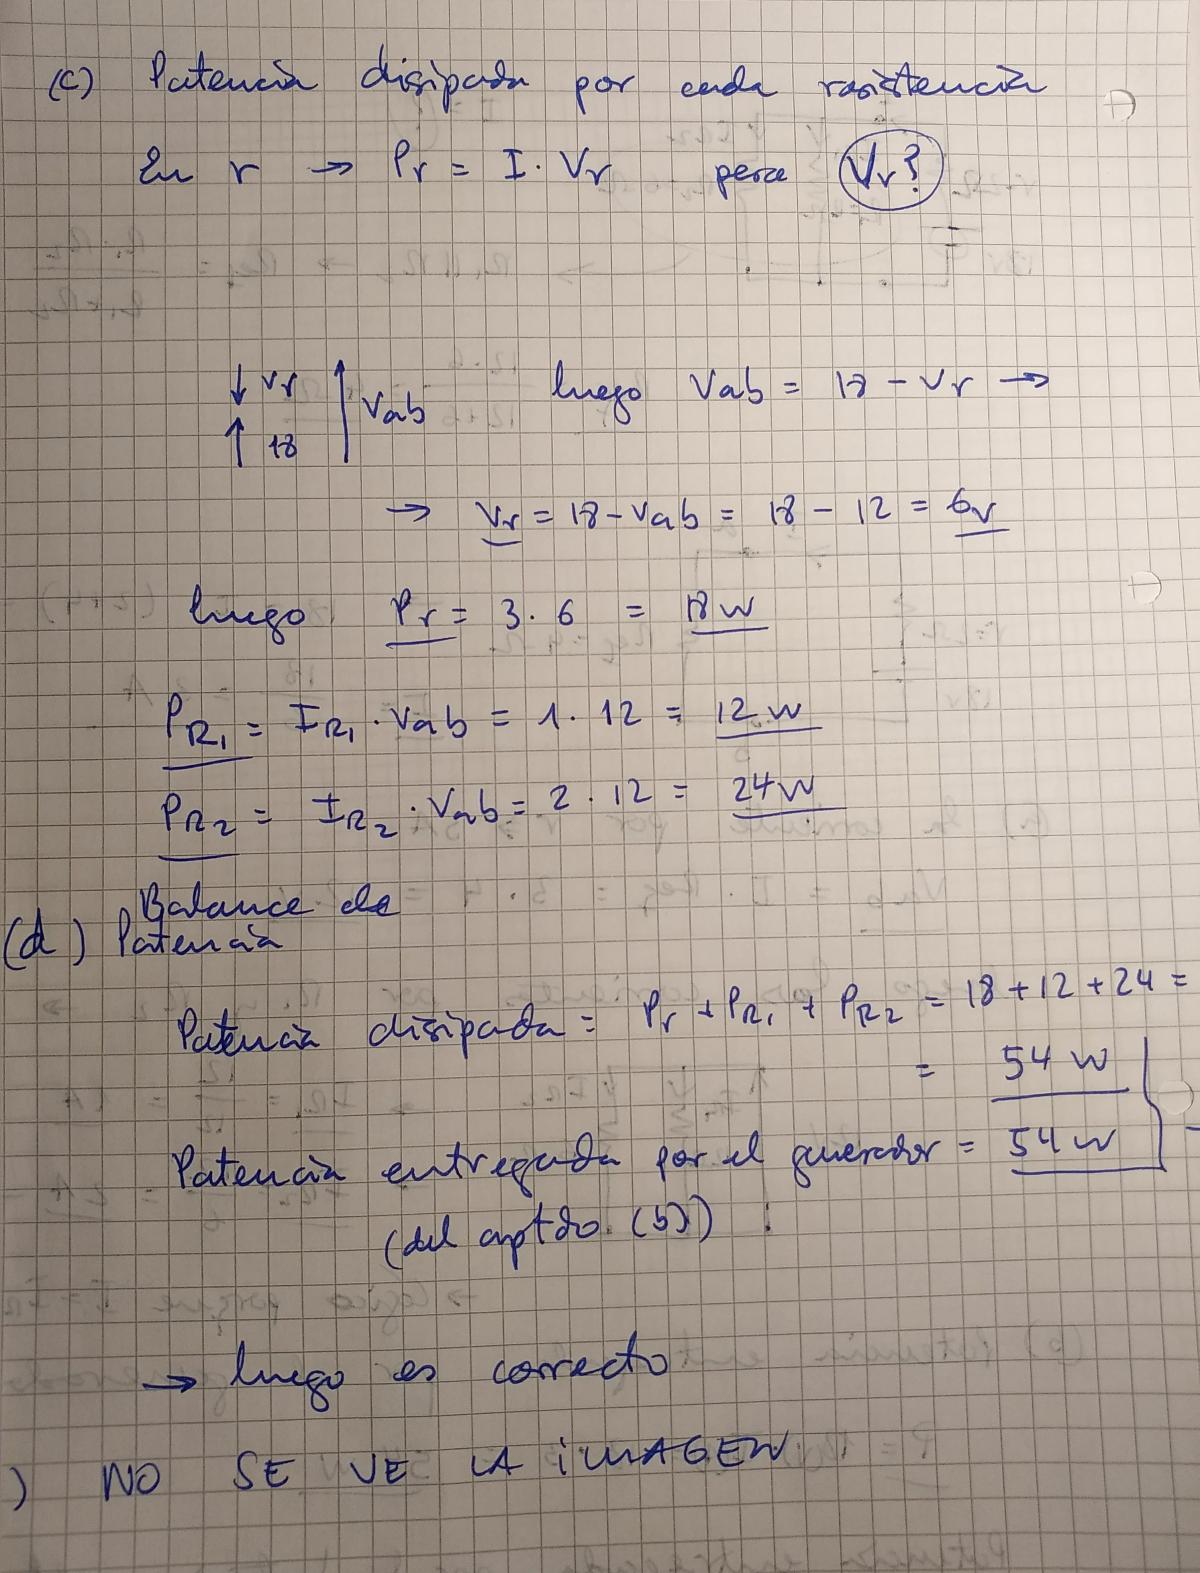 (c) Potencia disipada por cada resistencia
En r → Pr = I · Vr pero Vr?
↓ Vr ↑ Vab luego Vab = 18 - Vr →
↑ 18
→ Vr = 18 - Vab = 18 - 12 = 6v
luego Pr = 3 · 6 = 18 W
PR1 = IR1 · Vab = 1 · 12 = 12 W
PR2 = IR2 · Vab = 2 · 12 = 24 W
Balance de
(d) Potencia
Potencia disipada = Pr + PR1 + PR2 = 18 + 12 + 24 =
= 54 W
Potencia entregada por el generador = 54 W
(del aptdo. (b))
→ luego es correcto
) NO SE VE LA IMAGEN